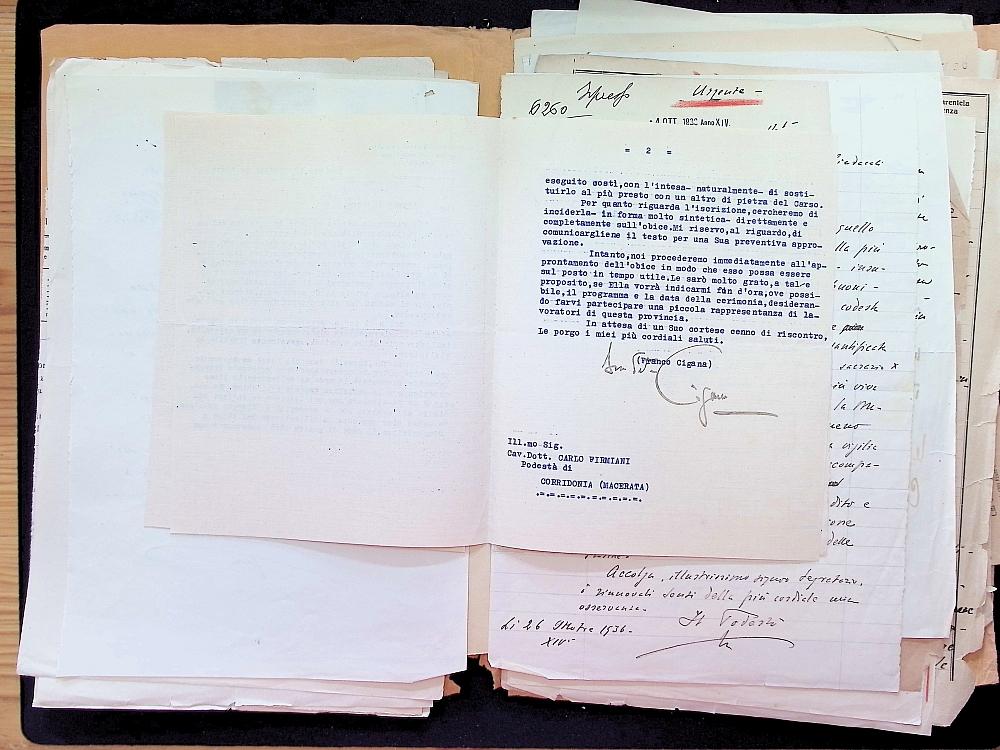 6260
Urgente -
- 4 OTT. 1936 Anno XIV.
= 2 =
eseguito costì,con l'intesa- naturalmente- di sosti-
tuirlo al più presto con un altro di pietra del Carso.
Per quanto riguarda l'iscrizione,cercheremo di
inciderla- in forma molto sintetica- direttamente e
completamente sull'obice.Mi riservo,al riguardo,di
comunicargliene il testo per una Sua preventiva appro-
vazione.
Intanto,noi procederemo immediatamente all'ap-
prontamento dell'obice in modo che esso possa essere
sul posto in tempo utile.Le sarò molto grato,a tale
proposito,se Ella vorrà indicarmi fin d'ora,ove possi-
bile,il programma e la data della cerimonia,desideran-
do farvi partecipare una piccola rappresentanza di la-
voratori di questa provincia.
In attesa di un Suo cortese cenno di riscontro,
Le porgo i miei più cordiali saluti.
(Franco Cigana)
Cigana
Ill.mo Sig.
Cav.Dott. CARLO FIRMIANI
Podestà di
CORRIDONIA (MACERATA)
.=.=.=.=.=.=.=.=.=.=.
arentela
enza
quello
lla più
- insu-
uoni -
codesto
e
santificata
sacrario x
più viva
la
meno
vigilia
compa-
dito e
one
delle
Accolga, illustrissimo signor Segretario,
i rinnovati sensi della più cordiale mia
osservanza.
Il Podestà
Li 26 Ottobre 1936-
XIV°